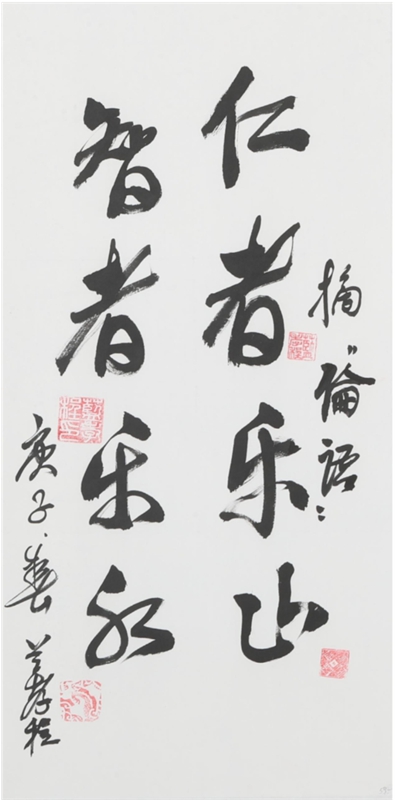 摘"論語"
仁者乐山
智者乐水
庚子春